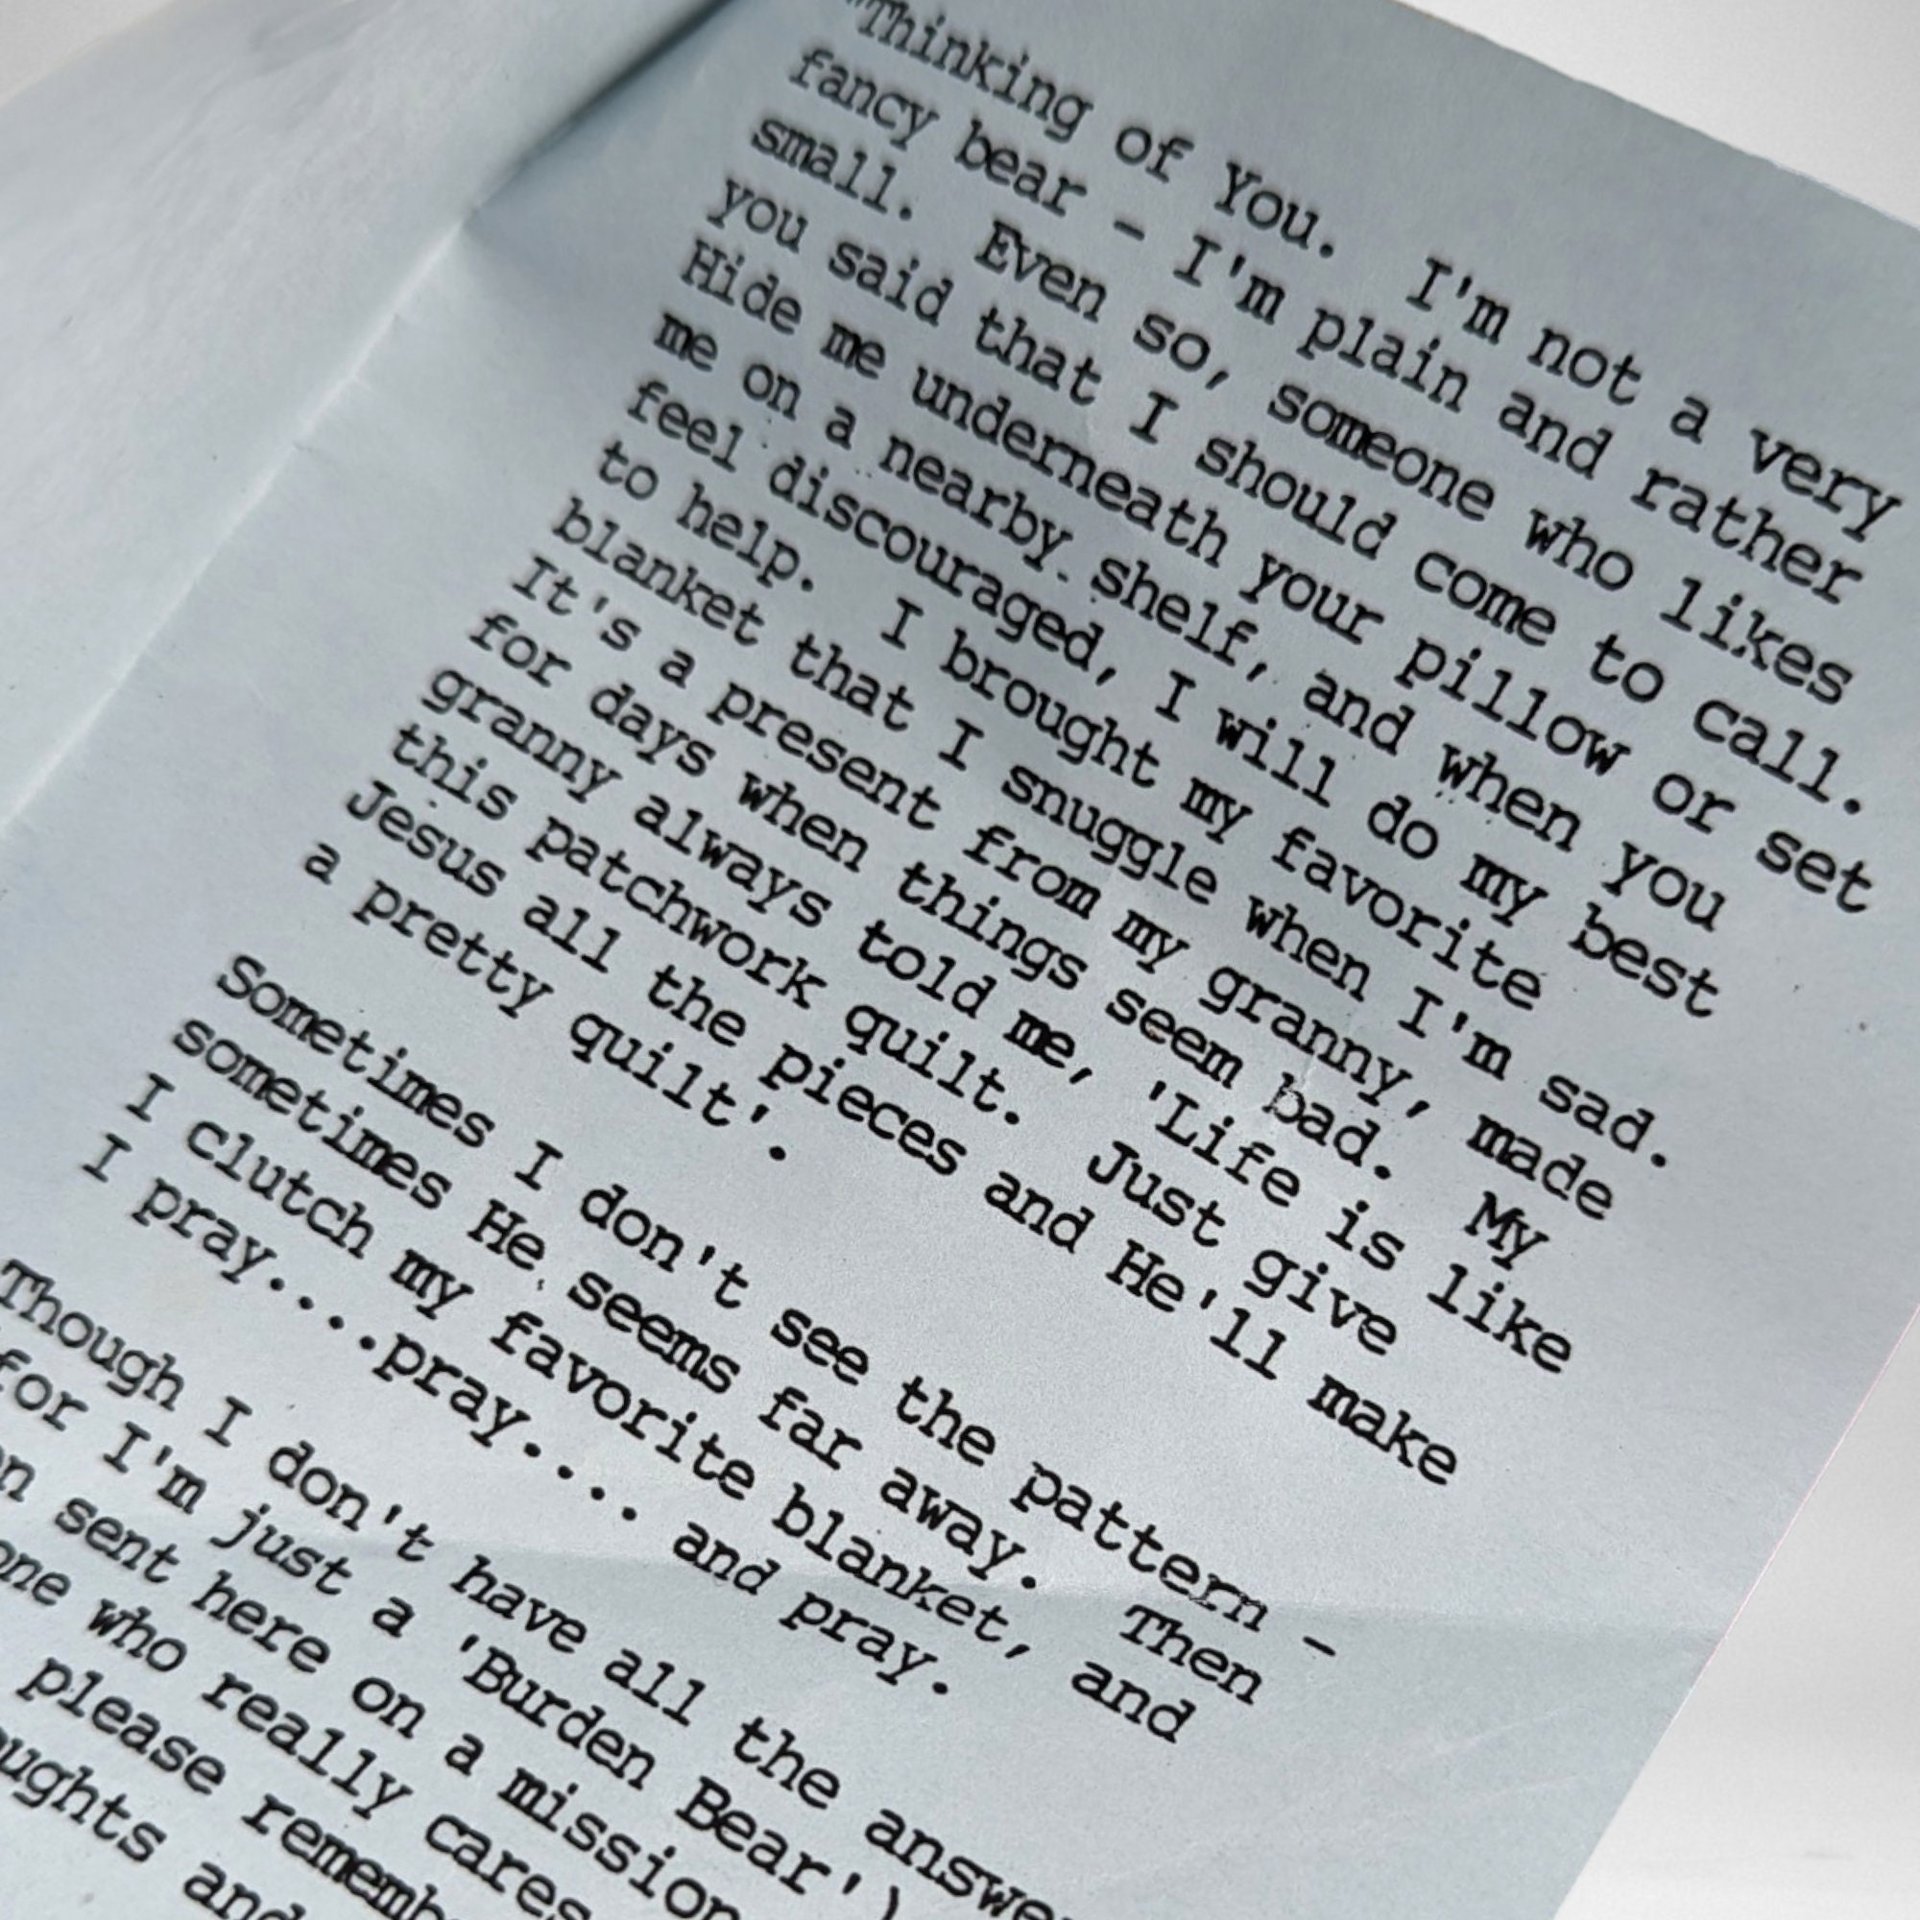 "Thinking of You.  I'm not a very
fancy bear - I'm plain and rather
small.  Even so, someone who likes
you said that I should come to call.
Hide me underneath your pillow or set
me on a nearby shelf, and when you
feel discouraged, I will do my best
to help.  I brought my favorite
blanket that I snuggle when I'm sad.
It's a present from my granny, made
for days when things seem bad.  My
granny always told me, 'Life is like
this patchwork quilt.  Just give
Jesus all the pieces and He'll make
a pretty quilt'.
Sometimes I don't see the pattern -
sometimes He seems far away.  Then
I clutch my favorite blanket, and
I pray....pray.... and pray.
Though I don't have all the
for I'm just a 'Burden Bear')
sent here on a mission
who really cares
please
and